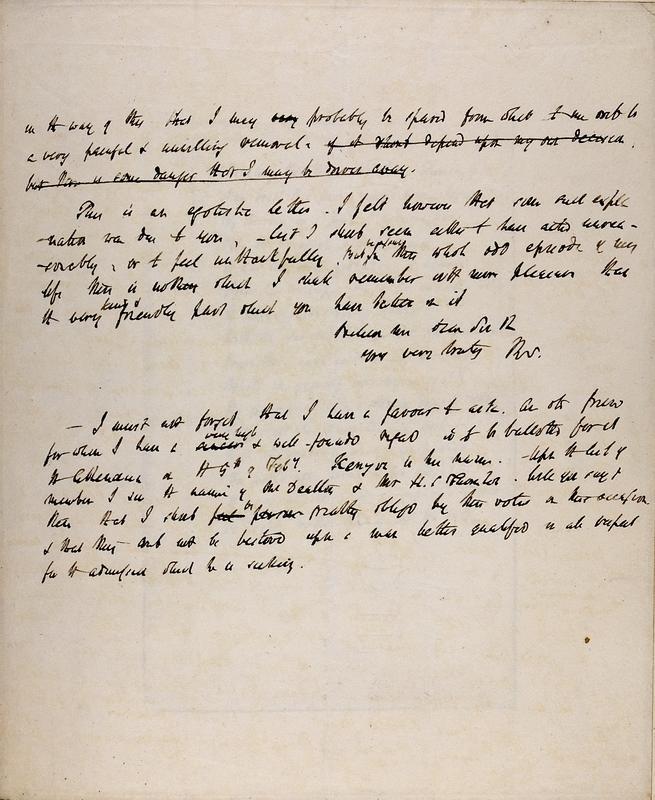 in the way of this that I may very probably be spared from what to me would be
a very painful & unwilling removal. if it should depend upon my own decision,
but there is some danger that I may be driven away.
This is an egotistic letter. I felt however that some such expla
-nation was due to you, - lest I should seem either to have acted unreas-
-onably, or to feel unthankfully. But in this whole odd episode of my
life there is nothing which I shall remember with more pleasure than
the very kind & friendly part which you have taken in it
Believe me dear Sir R
yours very truly
- I must not forget that I have a favour to ask. An old friend
for whom I have a very high & well-founded regard is to be balloted for at
the Athenaeum on the 5th of Feby. Kenyon is his name. Upon the list of
members I see the names of &. Will you say to
them that I should feel be greatly obliged by their votes on this occasion
& that they will not be bestowed upon a man better qualified in all respects
for the advantage which he is seeking.